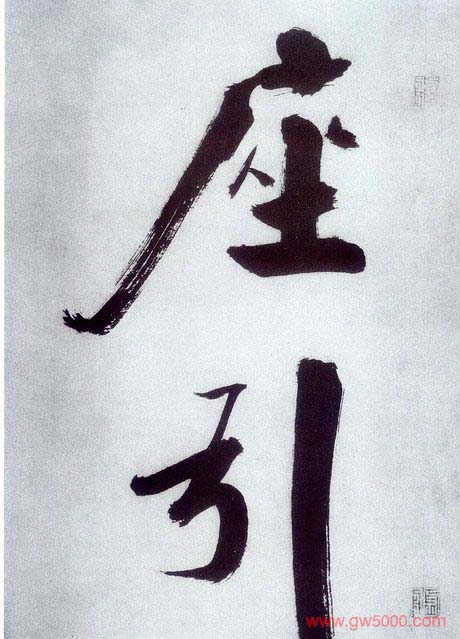 座
引
www.gw5000.com